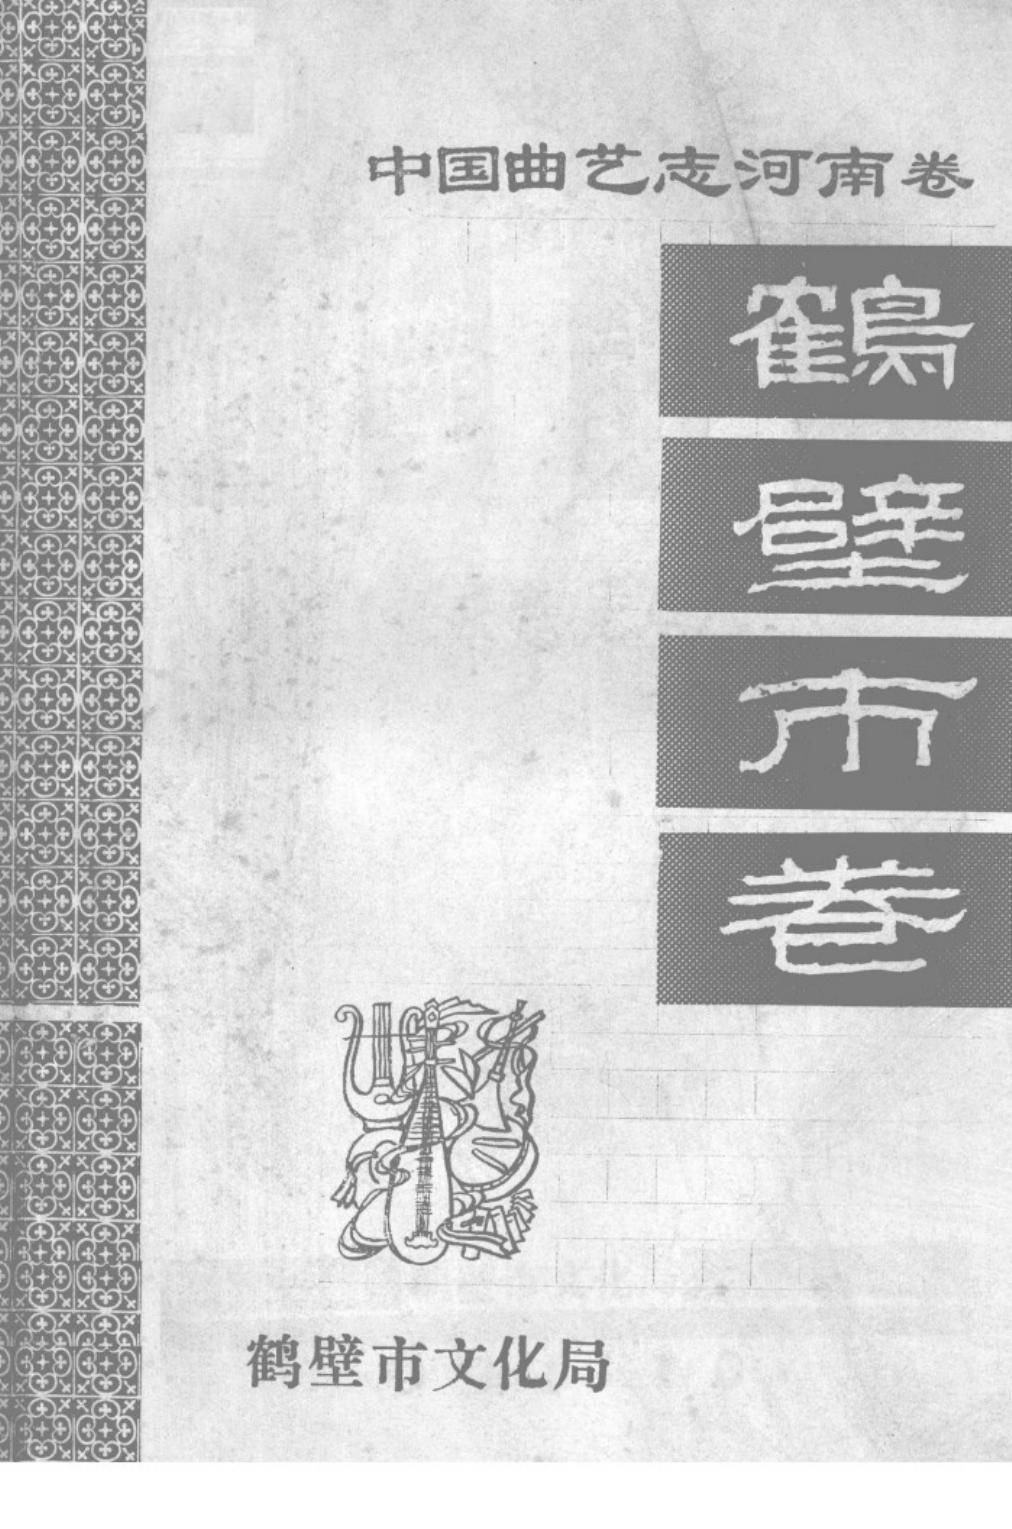 中国曲艺志河南卷
鶴
壁
市
卷
鹤壁市文化局